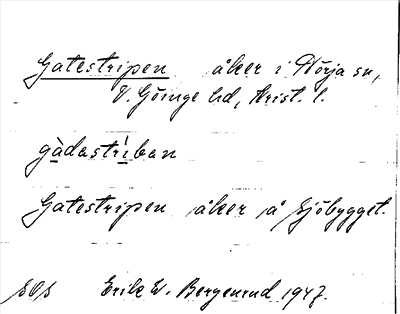 Gatestripen åker i Nörja sn,
V. Göinge hd, Krist. l.
gàdastrìban
Gatestripen åker å Sjöbygget.
SOS Erik W. Bergenrud 1947.